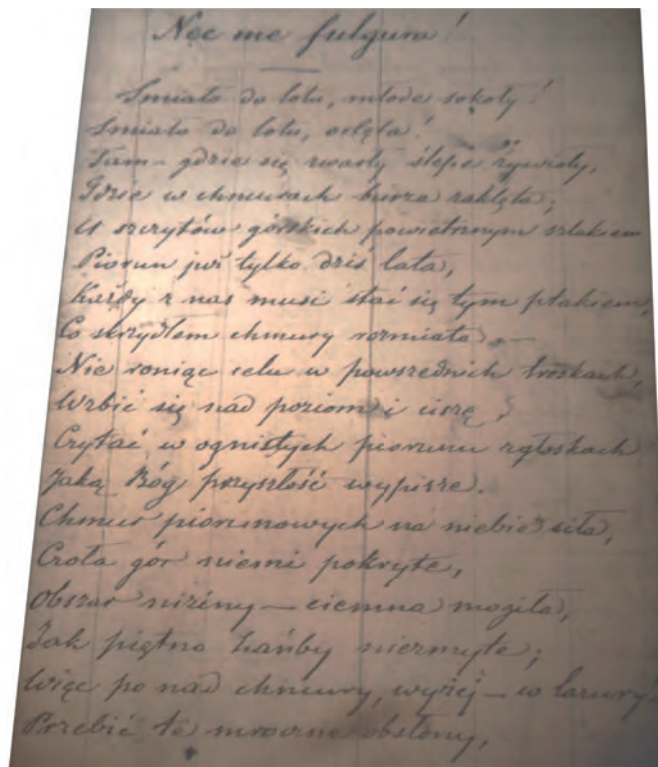 Nec me fulgura!
Śmiało do lotu, młode sokoły!
Śmiało do lotu, orlęta!
Tam – gdzie się zwarły ślepe żywioły,
Gdzie w chmurach burza zaklęta;
U szczytów górskich powietrznym szlakiem
Piorun już tylko dziś lata,
Każdy z nas musi stać się tym ptakiem,
Co skrzydłem chmury rozmiata. –
Nie roniąc celu w powszednich troskach,
Wzbić się nad poziom i ciszę,
Czytać w ognistych piorunu zgłoskach
Jaką Bóg przyszłość wypisze.
Chmur piorunowych na niebie siła,
Czoła gór niemi pokryte,
Obszar niziny – ciemna mogiła,
Jak piętno hańby niezmyte;
Więc po nad chmury, wyżej – w lazury!
Przebić te mroczne obsłony,